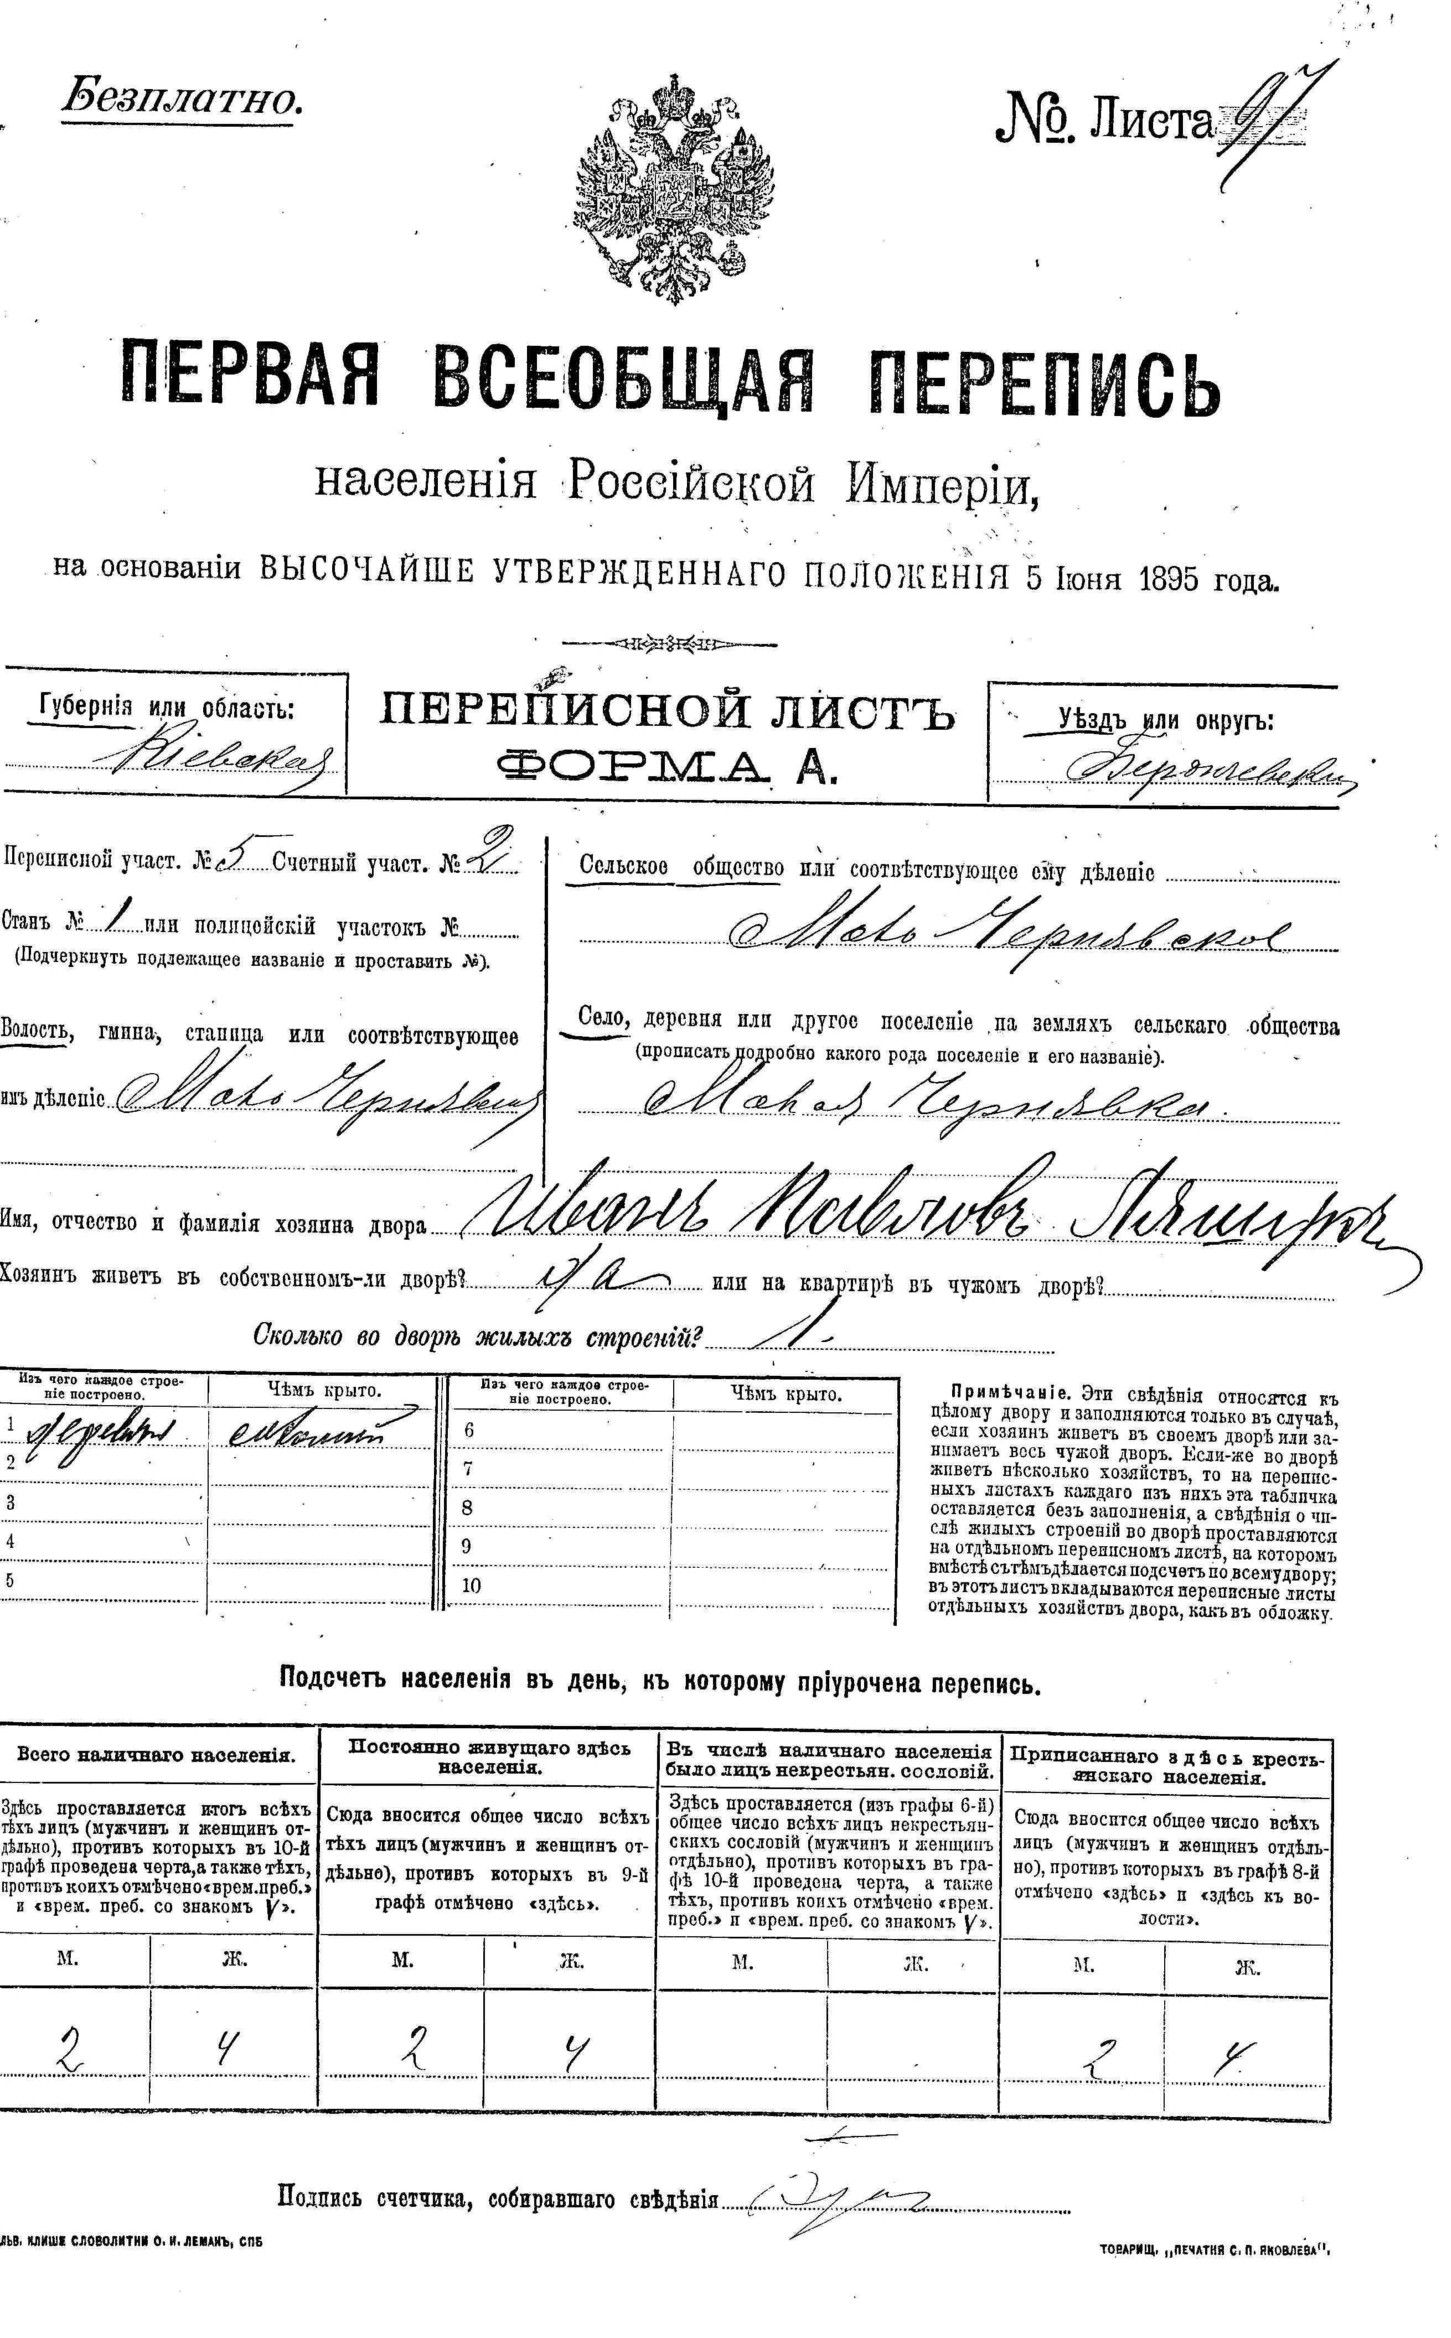 Безплатно.
№. Листа 97
ПЕРВАЯ ВСЕОБЩАЯ ПЕРЕПИСЬ
населенія Россійской Имперіи,
на основаніи ВЫСОЧАЙШЕ УТВЕРЖДЕННАГО ПОЛОЖЕНІЯ 5 Іюня 1895 года.
Губернія или область:
Кіевская
ПЕРЕПИСНОЙ ЛИСТЪ
ФОРМА А.
Уѣздъ или округъ:
Переписной участ. № 5 Счетный участ. № 2
Станъ № 1 или полицейскій участокъ №
(Подчеркнуть подлежащее названіе и проставить №).
Волость, гмина, станица или соотвѣтствующее
имъ дѣленіе Мало Чернявская
Сельское общество или соотвѣтствующее ему дѣленіе
Мало Чернявское
Село, деревня или другое поселеніе на земляхъ сельскаго общества
(прописать подробно какого рода поселеніе и его названіе).
Малая Чернявка.
Имя, отчество и фамилія хозяина двора Иванъ Павловъ
Хозяинъ живетъ въ собственномъ-ли дворѣ? да или на квартирѣ въ чужомъ дворѣ?
Сколько во дворѣ жилыхъ строеній? 1.
Изъ чего каждое строе-
ніе построено.
Чѣмъ крыто.
1
2
3
4
5
Изъ чего каждое строе-
ніе построено.
Чѣмъ крыто.
6
7
8
9
10
Примѣчаніе. Эти свѣдѣнія относятся къ
цѣлому двору и заполняются только въ случаѣ,
если хозяинъ живетъ въ своемъ дворѣ или за-
нимаетъ весь чужой дворъ. Если-же во дворѣ
живетъ нѣсколько хозяйствъ, то на перепис-
ныхъ листахъ каждаго изъ нихъ эта табличка
оставляется безъ заполненія, а свѣдѣнія о чи-
слѣ жилыхъ строеній во дворѣ проставляются
на отдѣльномъ переписномъ листѣ, на которомъ
вмѣстѣ съ тѣмъ дѣлается подсчетъ по всему двору;
въ этотъ листъ вкладываются переписные листы
отдѣльныхъ хозяйствъ двора, какъ въ обложку.
Подсчетъ населенія въ день, къ которому пріурочена перепись.
Всего наличнаго населенія.
Здѣсь проставляется итогъ всѣхъ
тѣхъ лицъ (мужчинъ и женщинъ от-
дѣльно), противъ которыхъ въ 10-й
графѣ проведена черта, а также тѣхъ,
противъ коихъ отмѣчено «врем. преб.»
и «врем. преб. со знакомъ V».
М. Ж.
2 4
Постоянно живущаго здѣсь
населенія.
Сюда вносится общее число всѣхъ
тѣхъ лицъ (мужчинъ и женщинъ от-
дѣльно), противъ которыхъ въ 9-й
графѣ отмѣчено «здѣсь».
М. Ж.
2 4
Въ числѣ наличнаго населенія
было лицъ некрестьян. сословій.
Здѣсь проставляется (изъ графы 6-й)
общее число всѣхъ лицъ некрестьян-
скихъ сословій (мужчинъ и женщинъ
отдѣльно), противъ которыхъ въ гра-
фѣ 10-й проведена черта, а также
тѣхъ, противъ коихъ отмѣчено «врем.
преб.» и «врем. преб. со знакомъ V».
М. Ж.
Приписаннаго здѣсь кресть-
янскаго населенія.
Сюда вносится общее число всѣхъ
лицъ (мужчинъ и женщинъ отдѣль-
но), противъ которыхъ въ графѣ 8-й
отмѣчено «здѣсь» и «здѣсь къ во-
лости».
М. Ж.
2 4
Подпись счетчика, собиравшаго свѣдѣнія
КЛИШЕ СЛОВОЛИТНИ О. И. ЛЕМАНЪ, СПБ
ТОВАРИЩ. „ПЕЧАТНЯ С. П. ЯКОВЛЕВА".